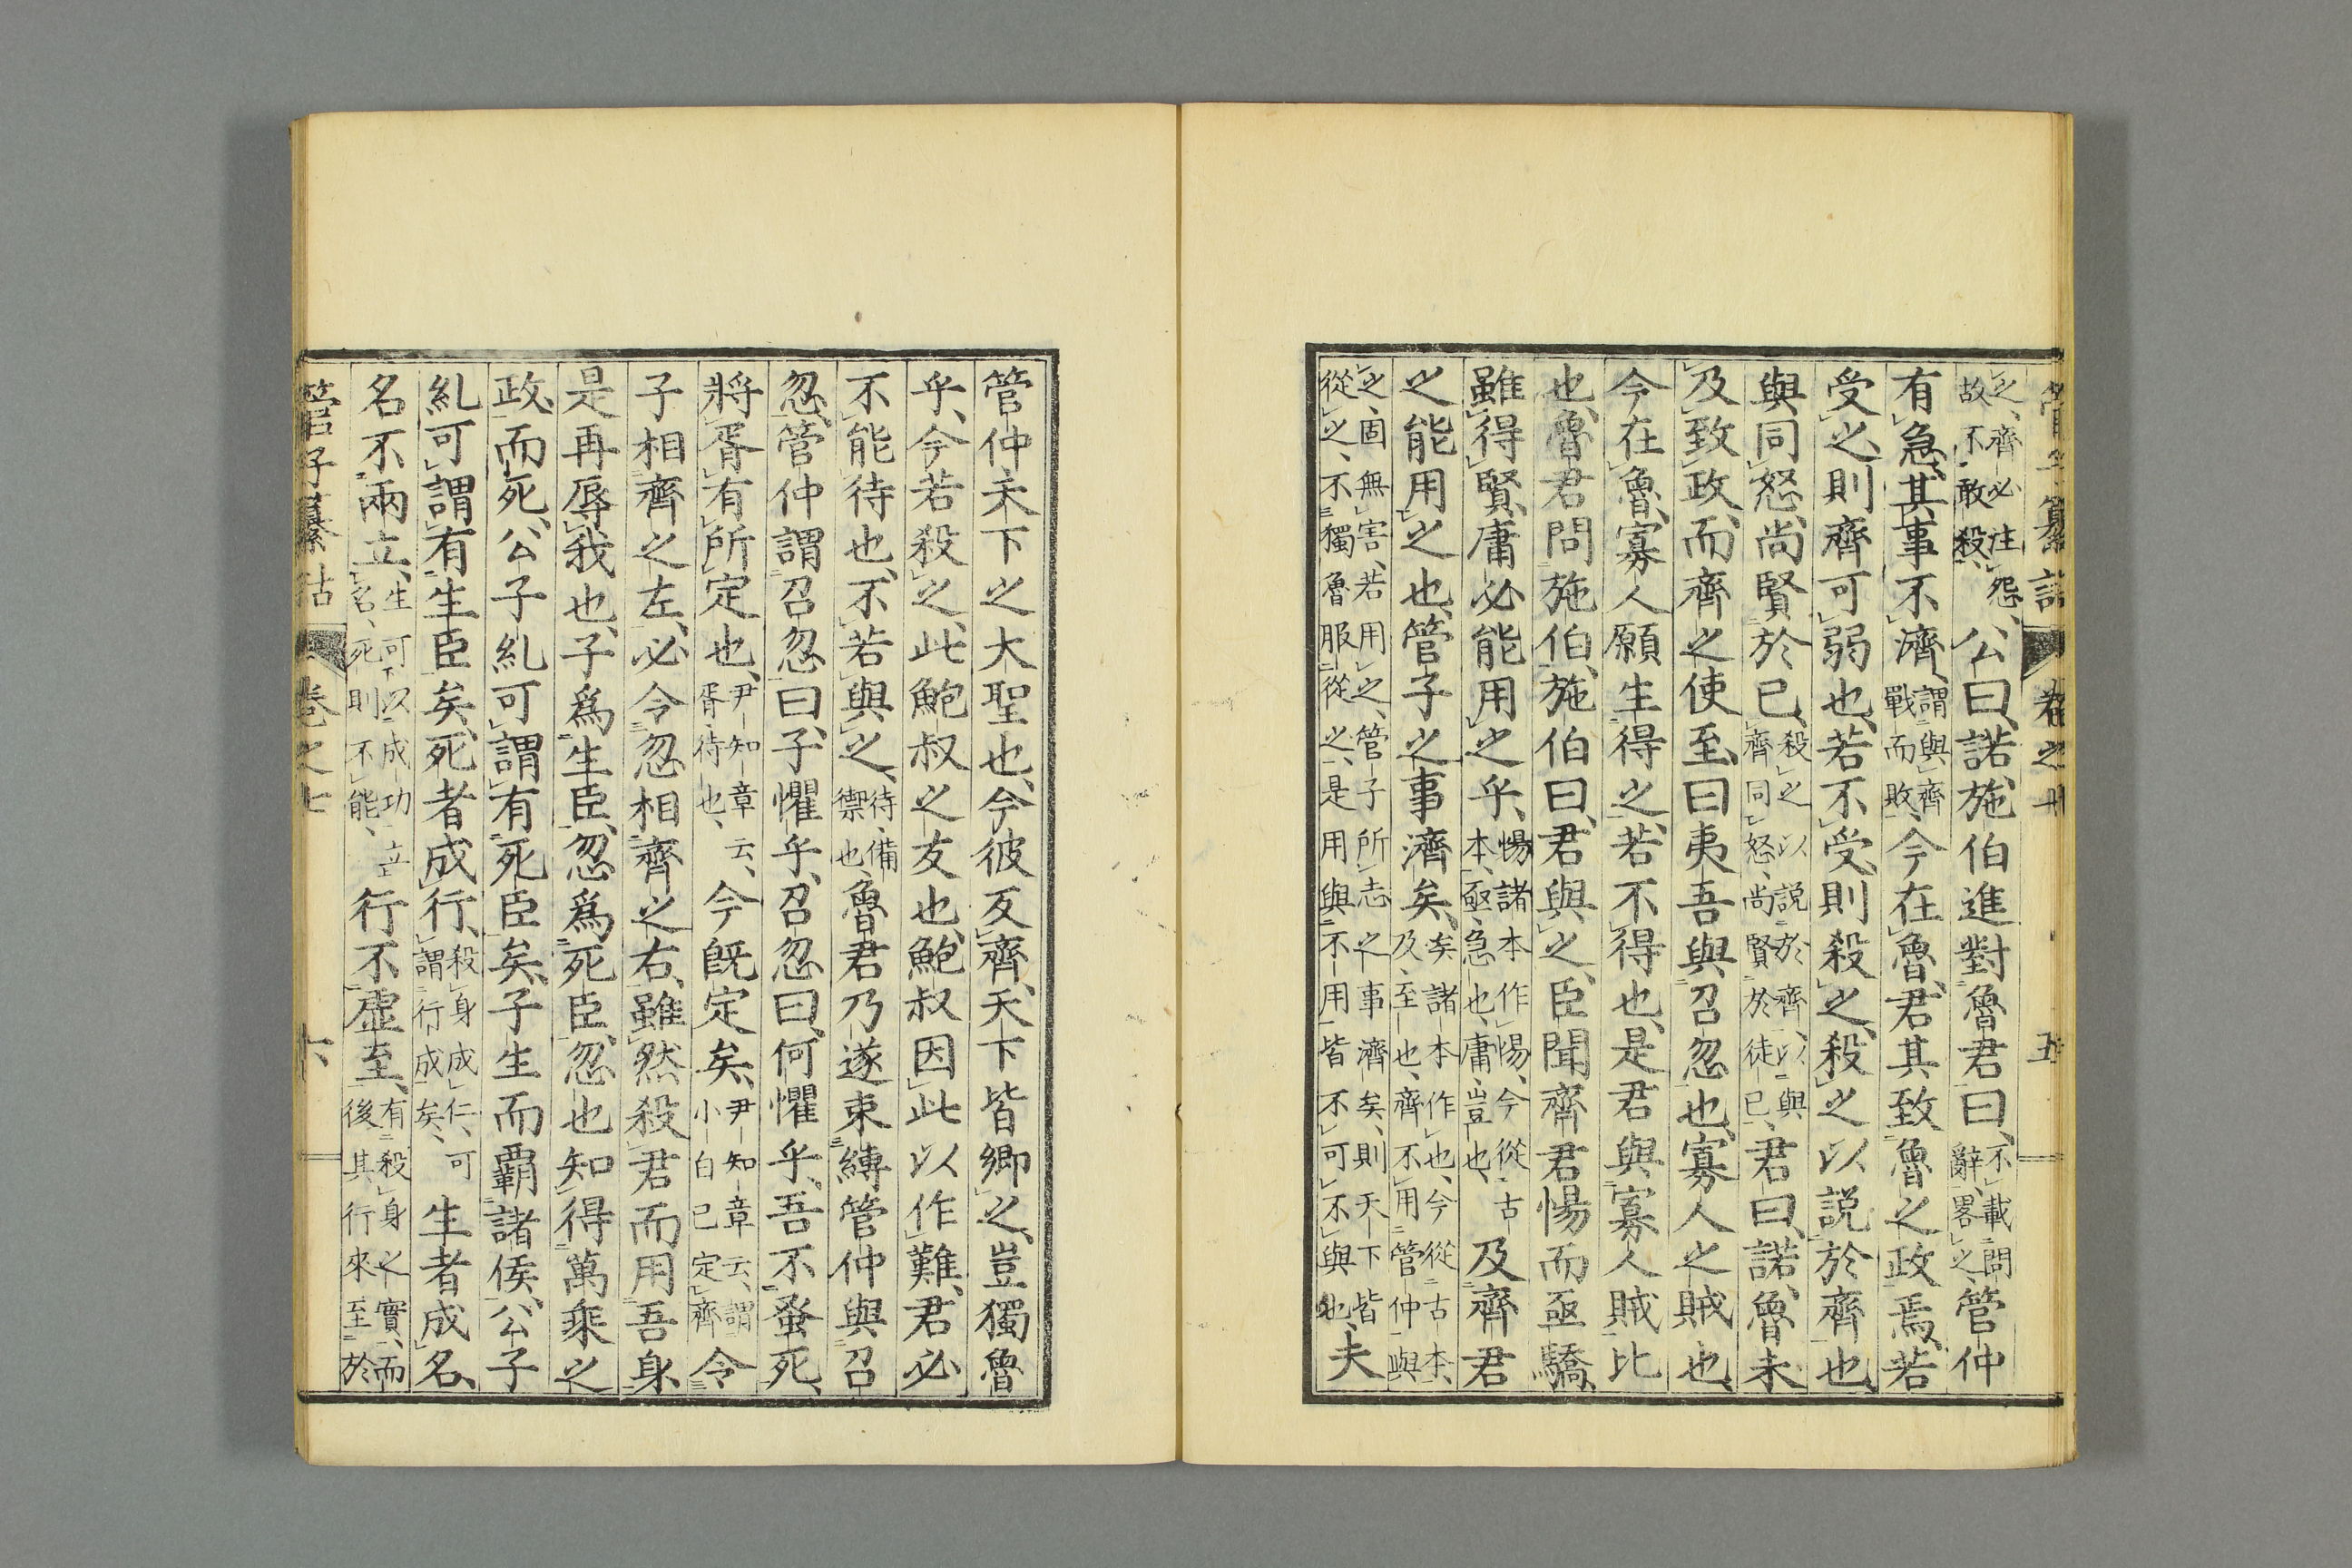 之、齊必注怨、故不敢殺、公曰、諾、施伯進對魯君曰、不載問辭、畧之、管仲
有急、其事不濟、謂與齊戰而敗、今在魯、君其致魯之政焉、若
受之則齊可弱也、若不受、則殺之、殺之以説於齊也、
與同怒、尚賢於已、殺之以説於齊、以與齊同怒、尚賢於徒已、君曰、諾、魯未
及致政、而齊之使至、曰夷吾與召忽也、寡人之賊也、
今在魯、寡人願生得之、若不得也、是君與寡人賊比
也、魯君問施伯、施伯曰、君與之、臣聞齊君惕而亟驕、
雖得賢、庸必能用之乎、惕諸本作愓、今從古本、亟、急也、庸、豈也、及齊君
之能用之也、管子之事濟矣、矣諸本作也、今從古本、及、至也、齊不用管仲與
之、固無害、若用之、管子所志之事濟矣、則天下皆從之、不獨魯服從之、是用與不用皆不可不與也、夫
管仲天下之大聖也、今彼反齊、天下皆鄉之、豈獨魯
乎、今若殺之、此鮑叔之友也、鮑叔因此以作難、君必
不能待也、不若與之、待、備禦也、魯君乃遂束縛管仲與召
忽、管仲謂召忽曰、子懼乎、召忽曰、何懼乎、吾不蚤死、
將胥有所定也、尹知章云、胥、待也、今既定矣、尹知章云、謂小白已定齊、令
子相齊之左、必令忽相齊之右、雖然殺君而用吾身、
是再辱我也、子爲生臣、忽爲死臣、忽也知得萬乘之
政、而死、公子糺可謂有死臣矣、子生而覇諸侯、公子
糺可謂有生臣矣、死者成行、殺身成仁、可謂行成矣、生者成名、
名不兩立、生可以成功立名、死則不能、行不虛至、有殺身之實、而後其行來至於
管子纂詁 卷之七 六